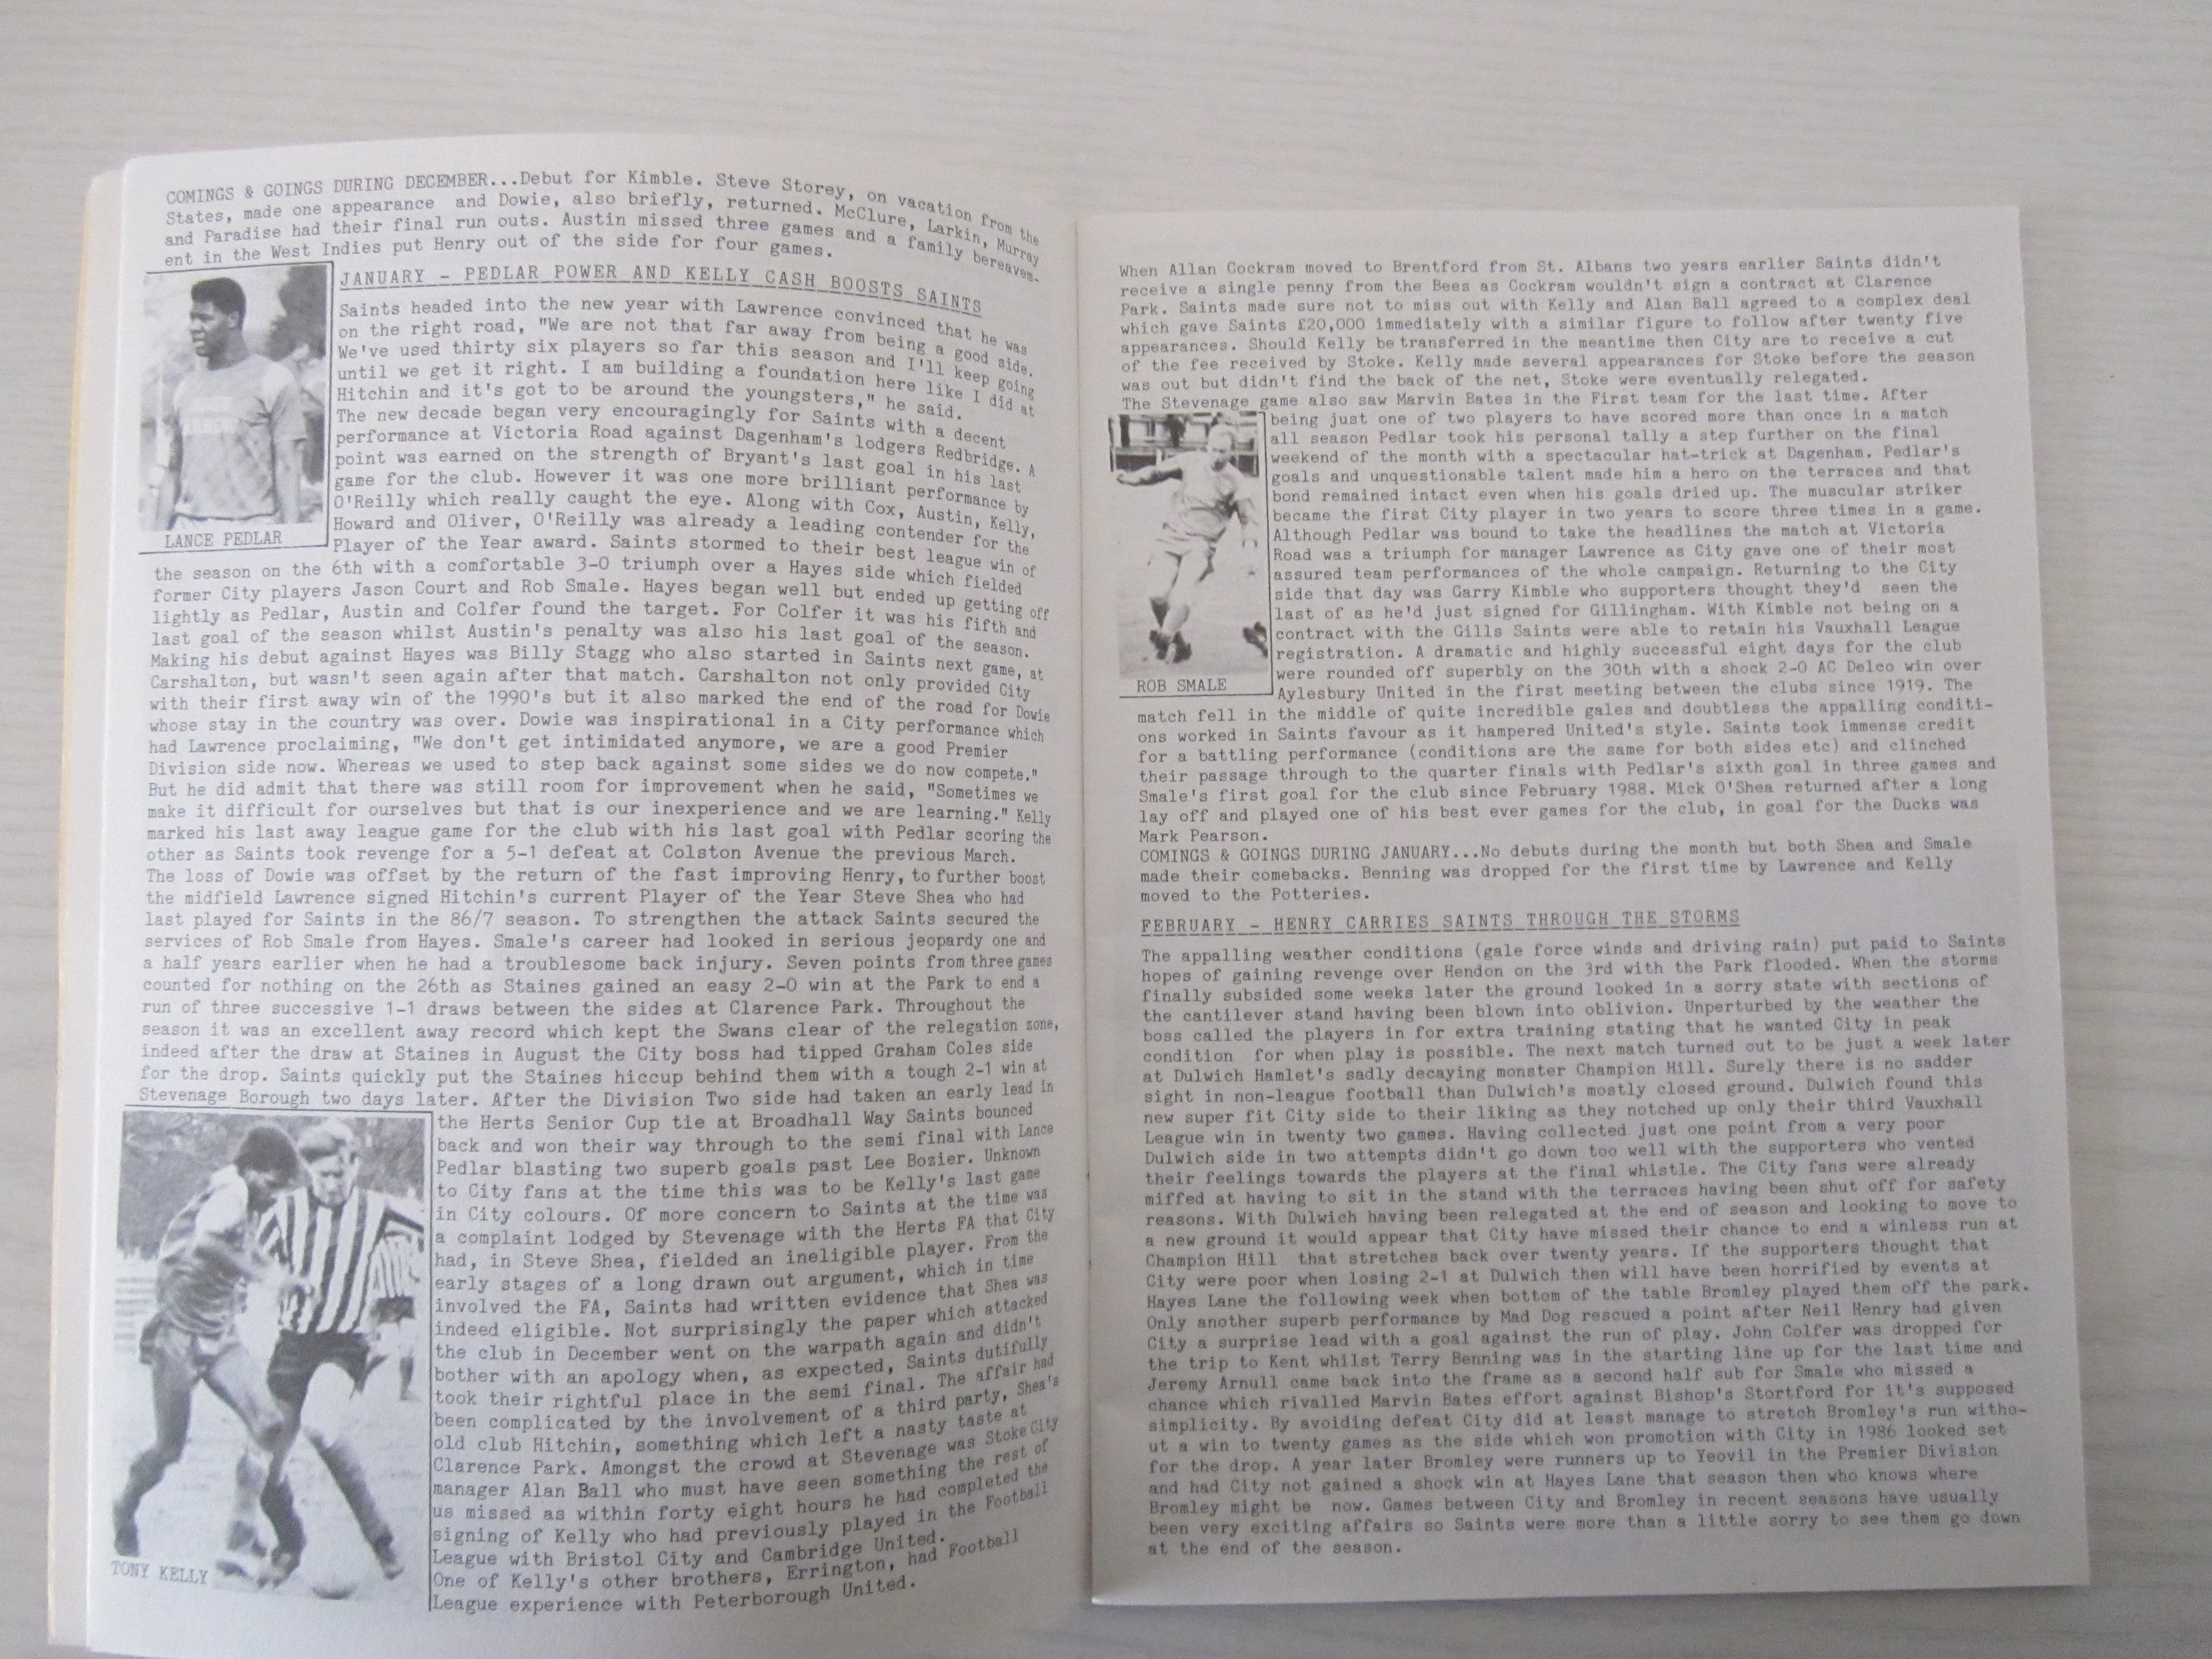 COMINGS & GOINGS DURING DECEMBER...Debut for Kimble. Steve Storey, on vacation from the
States, made one appearance and Dowie, also briefly, returned. McClure, Larkin, Murray
and Paradise had their final run outs. Austin missed three games and a family bereavem-
ent in the West Indies put Henry out of the side for four games.
JANUARY - PEDLAR POWER AND KELLY CASH BOOSTS SAINTS
Saints headed into the new year with Lawrence convinced that he was
on the right road, "We are not that far away from being a good side.
We've used thirty six players so far this season and I'll keep going
until we get it right. I am building a foundation here like I did at
Hitchin and it's got to be around the youngsters," he said.
The new decade began very encouragingly for Saints with a decent
performance at Victoria Road against Dagenham's lodgers Redbridge. A
point was earned on the strength of Bryant's last goal in his last
game for the club. However it was one more brilliant performance by
O'Reilly which really caught the eye. Along with Cox, Austin, Kelly,
Howard and Oliver, O'Reilly was already a leading contender for the
Player of the Year award. Saints stormed to their best league win of
LANCE PEDLAR
the season on the 6th with a comfortable 3-0 triumph over a Hayes side which fielded
former City players Jason Court and Rob Smale. Hayes began well but ended up getting off
lightly as Pedlar, Austin and Colfer found the target. For Colfer it was his fifth and
last goal of the season whilst Austin's penalty was also his last goal of the season.
Making his debut against Hayes was Billy Stagg who also started in Saints next game, at
Carshalton, but wasn't seen again after that match. Carshalton not only provided City
with their first away win of the 1990's but it also marked the end of the road for Dowie
whose stay in the country was over. Dowie was inspirational in a City performance which
had Lawrence proclaiming, "We don't get intimidated anymore, we are a good Premier
Division side now. Whereas we used to step back against some sides we do now compete."
But he did admit that there was still room for improvement when he said, "Sometimes we
make it difficult for ourselves but that is our inexperience and we are learning." Kelly
marked his last away league game for the club with his last goal with Pedlar scoring the
other as Saints took revenge for a 5-1 defeat at Colston Avenue the previous March.
The loss of Dowie was offset by the return of the fast improving Henry, to further boost
the midfield Lawrence signed Hitchin's current Player of the Year Steve Shea who had
last played for Saints in the 86/7 season. To strengthen the attack Saints secured the
services of Rob Smale from Hayes. Smale's career had looked in serious jeopardy one and
a half years earlier when he had a troublesome back injury. Seven points from three games
counted for nothing on the 26th as Staines gained an easy 2-0 win at the Park to end a
run of three successive 1-1 draws between the sides at Clarence Park. Throughout the
season it was an excellent away record which kept the Swans clear of the relegation zone,
indeed after the draw at Staines in August the City boss had tipped Graham Coles side
for the drop. Saints quickly put the Staines hiccup behind them with a tough 2-1 win at
Stevenage Borough two days later. After the Division Two side had taken an early lead in
the Herts Senior Cup tie at Broadhall Way Saints bounced
back and won their way through to the semi final with Lance
Pedlar blasting two superb goals past Lee Bozier. Unknown
to City fans at the time this was to be Kelly's last game
in City colours. Of more concern to Saints at the time was
a complaint lodged by Stevenage with the Herts FA that City
had, in Steve Shea, fielded an ineligible player. From the
early stages of a long drawn out argument, which in time
involved the FA, Saints had written evidence that Shea was
indeed eligible. Not surprisingly the paper which attacked
the club in December went on the warpath again and didn't
bother with an apology when, as expected, Saints dutifully
took their rightful place in the semi final. The affair had
been complicated by the involvement of a third party, Shea's
old club Hitchin, something which left a nasty taste at
Clarence Park. Amongst the crowd at Stevenage was Stoke City
manager Alan Ball who must have seen something the rest of
us missed as within forty eight hours he had completed the
signing of Kelly who had previously played in the Football
League with Bristol City and Cambridge United.
One of Kelly's other brothers, Errington, had Football
League experience with Peterborough United.
TONY KELLY
When Allan Cockram moved to Brentford from St. Albans two years earlier Saints didn't
receive a single penny from the Bees as Cockram wouldn't sign a contract at Clarence
Park. Saints made sure not to miss out with Kelly and Alan Ball agreed to a complex deal
which gave Saints £20,000 immediately with a similar figure to follow after twenty five
appearances. Should Kelly be transferred in the meantime then City are to receive a cut
of the fee received by Stoke. Kelly made several appearances for Stoke before the season
was out but didn't find the back of the net, Stoke were eventually relegated.
The Stevenage game also saw Marvin Bates in the First team for the last time. After
being just one of two players to have scored more than once in a match
all season Pedlar took his personal tally a step further on the final
weekend of the month with a spectacular hat-trick at Dagenham. Pedlar's
goals and unquestionable talent made him a hero on the terraces and that
bond remained intact even when his goals dried up. The muscular striker
became the first City player in two years to score three times in a game.
Although Pedlar was bound to take the headlines the match at Victoria
Road was a triumph for manager Lawrence as City gave one of their most
assured team performances of the whole campaign. Returning to the City
side that day was Garry Kimble who supporters thought they'd seen the
last of as he'd just signed for Gillingham. With Kimble not being on a
contract with the Gills Saints were able to retain his Vauxhall League
registration. A dramatic and highly successful eight days for the club
were rounded off superbly on the 30th with a shock 2-0 AC Delco win over
Aylesbury United in the first meeting between the clubs since 1919. The
ROB SMALE
match fell in the middle of quite incredible gales and doubtless the appalling conditi-
ons worked in Saints favour as it hampered United's style. Saints took immense credit
for a battling performance (conditions are the same for both sides etc) and clinched
their passage through to the quarter finals with Pedlar's sixth goal in three games and
Smale's first goal for the club since February 1988. Mick O'Shea returned after a long
lay off and played one of his best ever games for the club, in goal for the Ducks was
Mark Pearson.
COMINGS & GOINGS DURING JANUARY...No debuts during the month but both Shea and Smale
made their comebacks. Benning was dropped for the first time by Lawrence and Kelly
moved to the Potteries.
FEBRUARY - HENRY CARRIES SAINTS THROUGH THE STORMS
The appalling weather conditions (gale force winds and driving rain) put paid to Saints
hopes of gaining revenge over Hendon on the 3rd with the Park flooded. When the storms
finally subsided some weeks later the ground looked in a sorry state with sections of
the cantilever stand having been blown into oblivion. Unperturbed by the weather the
boss called the players in for extra training stating that he wanted City in peak
condition for when play is possible. The next match turned out to be just a week later
at Dulwich Hamlet's sadly decaying monster Champion Hill. Surely there is no sadder
sight in non-league football than Dulwich's mostly closed ground. Dulwich found this
new super fit City side to their liking as they notched up only their third Vauxhall
League win in twenty two games. Having collected just one point from a very poor
Dulwich side in two attempts didn't go down too well with the supporters who vented
their feelings towards the players at the final whistle. The City fans were already
miffed at having to sit in the stand with the terraces having been shut off for safety
reasons. With Dulwich having been relegated at the end of season and looking to move to
a new ground it would appear that City have missed their chance to end a winless run at
Champion Hill that stretches back over twenty years. If the supporters thought that
City were poor when losing 2-1 at Dulwich then will have been horrified by events at
Hayes Lane the following week when bottom of the table Bromley played them off the park.
Only another superb performance by Mad Dog rescued a point after Neil Henry had given
City a surprise lead with a goal against the run of play. John Colfer was dropped for
the trip to Kent whilst Terry Benning was in the starting line up for the last time and
Jeremy Arnull came back into the frame as a second half sub for Smale who missed a
chance which rivalled Marvin Bates effort against Bishop's Stortford for it's supposed
simplicity. By avoiding defeat City did at least manage to stretch Bromley's run witho-
ut a win to twenty games as the side which won promotion with City in 1986 looked set
for the drop. A year later Bromley were runners up to Yeovil in the Premier Division
and had City not gained a shock win at Hayes Lane that season then who knows where
Bromley might be now. Games between City and Bromley in recent seasons have usually
been very exciting affairs so Saints were more than a little sorry to see them go down
at the end of the season.